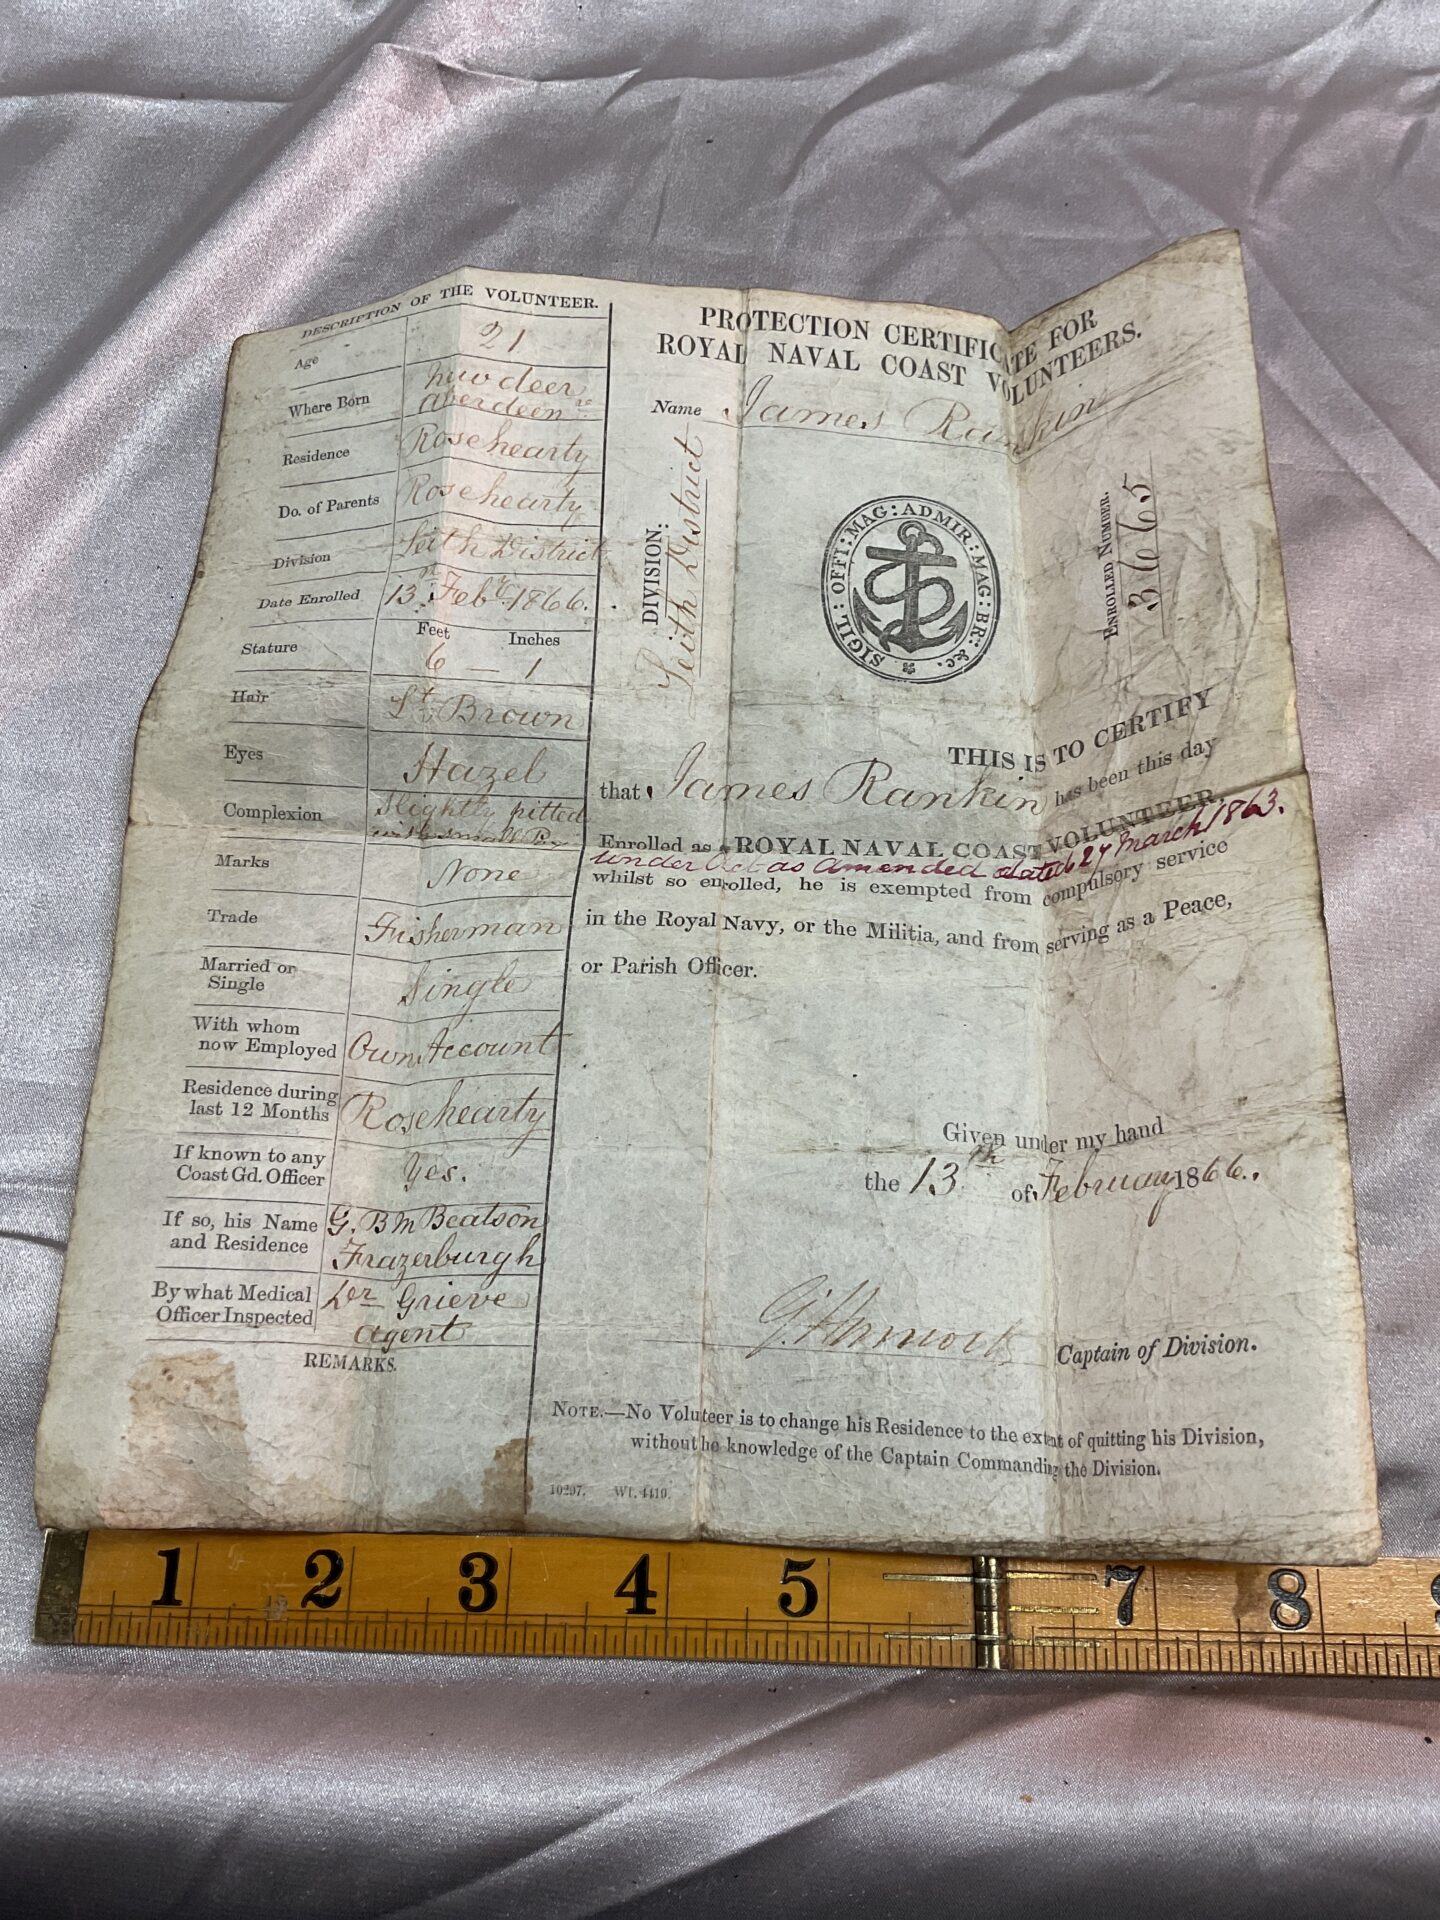 DESCRIPTION OF THE VOLUNTEER.
Age 21
Where Born New deer
Aberdeen re
Residence Rosehearty
Do. of Parents Rosehearty
Division Leith District
Date Enrolled 13th Feby. 1866.
Feet Inches
Stature 6 — 1
Hair Lt Brown
Eyes Hazel
Complexion Slightly pitted
with small Pox
Marks None
Trade Fisherman
Married or
Single Single
With whom
now Employed Own Account
Residence during
last 12 Months Rosehearty
If known to any
Coast Gd. Officer Yes.
If so, his Name G. B M Beatson
and Residence Frazerburgh
By what Medical
Officer Inspected Grieve
Agent
REMARKS.
PROTECTION CERTIFICATE FOR
ROYAL NAVAL COAST VOLUNTEERS.
Name James Rankin
DIVISION:
Leith District
SIGIL: OFFI: MAG: ADMIR: MAG: BR: &c.
ENROLLED NUMBER.
3665
THIS IS TO CERTIFY
that James Rankin has been this day
Enrolled as a ROYAL NAVAL COAST VOLUNTEER,
under Act as amended dated 27 March 1863.
whilst so enrolled, he is exempted from compulsory service
in the Royal Navy, or the Militia, and from serving as a Peace,
or Parish Officer.
Given under my hand
the 13th of February 1866.
Captain of Division.
NOTE.—No Voluteer is to change his Residence to the extent of quitting his Division,
without he knowledge of the Captain Commanding the Division.
10297. Wt. 4410.
1 2 3 4 5 7 8 9